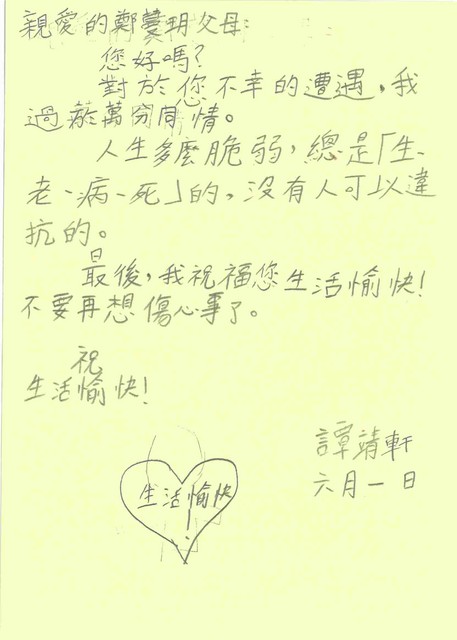 親愛的鄭蕓玥父母:
您好嗎?
對於您不幸的遭遇,我
過萬分同情。
人生多麼脆弱,總是「生、
老、病、死」的,沒有人可以違
抗的。
最後,我祝福您生活愉快!
不要再想傷心事了。
祝
生活愉快!
譚靖軒
六月一日
生活愉快
!